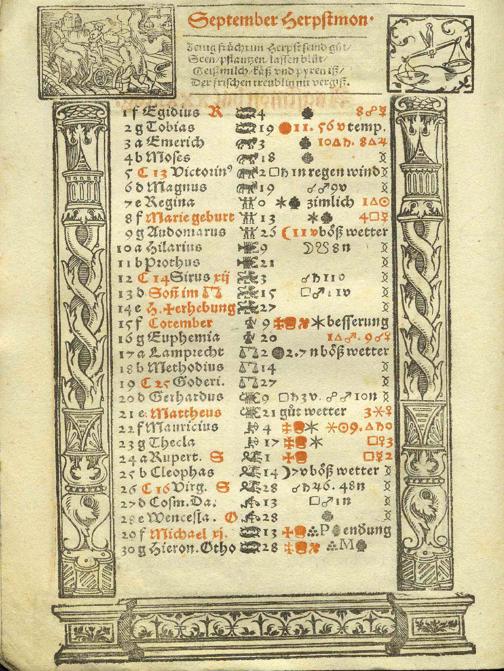 September Herpstmon.
Zenig frücht im Herpst seind güt/
Seen/pflantzen lassen blüt/
Geißmilch/käß vnd pyren iß/
Der frischen treublin nit vergiß.
1 f Egidius R 4 8☍☿
2 g Tobias 19 11. 56 v temp.
3 a Emerich 3 10△♄. 8△♃
4 b Moses 18
5 C 13 Victorin⁹ 2 □♄ in regen wind
6 d Magnus 19 ☌♂9v
7 e Regina 0 ✶ zimlich 1△☉
8 f Marie geburt 13 ✶ 4□☿
9 g Audomarus 26 ☾11v böß wetter
10 a Hilarius 9 ☽☋8n
11 b Prothus 21
12 C 14 Sirus xij 3 ☌♄110
13 d Soñ im ♎ 15 □♂.1v
14 e H.✠erhebung 27
15 f Cotember 9 ✠ ✶ besserung
16 g Euphemia 20 1△♂. 9☍♀
17 a Lamprecht 22 2.7n böß wetter
18 b Methodius 14
19 C 25 Goderi. 27
20 d Gerhardus 9 □♄3v. ☍♂10n
21 e Mattheus 21 güt wetter 3✶♀
22 f Mauricius 4 ✠ ✶ ✶☉9.△♄0
23 g Thecla 17 ✠ ✶ □♀3
24 a Rupert. S 1 ✠ □☿2
25 b Cleophas 14 ☽7v böß wetter
26 C 16 Virg. S 28 ☌♄46. 48n
27 d Cosm. Da. 13 □♂1n
28 e Wencesla. O 28
29 f Michael xj. 13 ✠ P endung
30 g Hieron. Otho 28 ✠ M